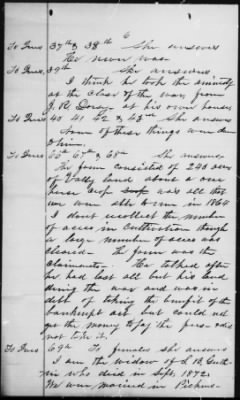 6
To Ques 37th & 38th She answers
He never was
To Ques. 39th She answers
I think he took the amnesty
at the close of the war from
J. R. Dorsey at his own house
To Ques 40 41 42 & 43rd She answers
None of these things were done
To Ques 66th 67th & 68th She answers
The farm consisted of 240 acres
of Valley land about a one
horse crop was all that
we were able to run in 1864
I dont recollect the number
of acres in cultivation though
a large number of acres was
cleared. The farm was the
claimants. He talked after
he had lost all but his land
during the war and was in
debt of taking the benefit of the
bankrupt act but could not
get the money to pay the fees and
not take it.
To Ques 69th To females she answers
I am the widow of
who died in Sept. 1872.
We were married in Pickens